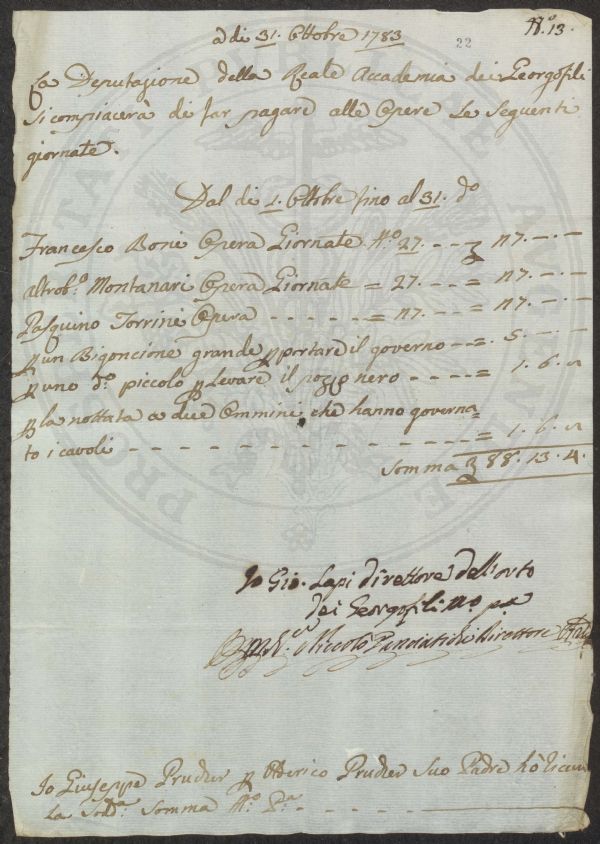 N.º 13.
a di 31. Ottobre 1783
22
La Deputazione della Reale Accademia dei Georgofili
Si compiacerà di far pagare alle Opere Le Seguenti
giornate.
Dal di 1. Ottobre fino al 31. dº
Francesco Boni Opera Giornate Nº 27. - - -
altrobº. Montanari Opera Giornate = 27. - - - =
Pasquino Torrini Opera - - - - - =
un Bigoncione grande portare il governo - - = 5. - . -
uno dº. piccolo Levare il pozzo nero - - - - = 1. 6.
la nottata a due Ommini che hanno governa=
to i cavoli - - - - - - - - - - - - = 1. 6.
Somma 88. 13. 4.
Io Gio. Lapi direttore dell'orto
dei Georgofili
Niccolò Panciatichi Direttore
Io Giuseppe Prucher Oderico Prucher Suo Padre hò
la Sodª. Somma